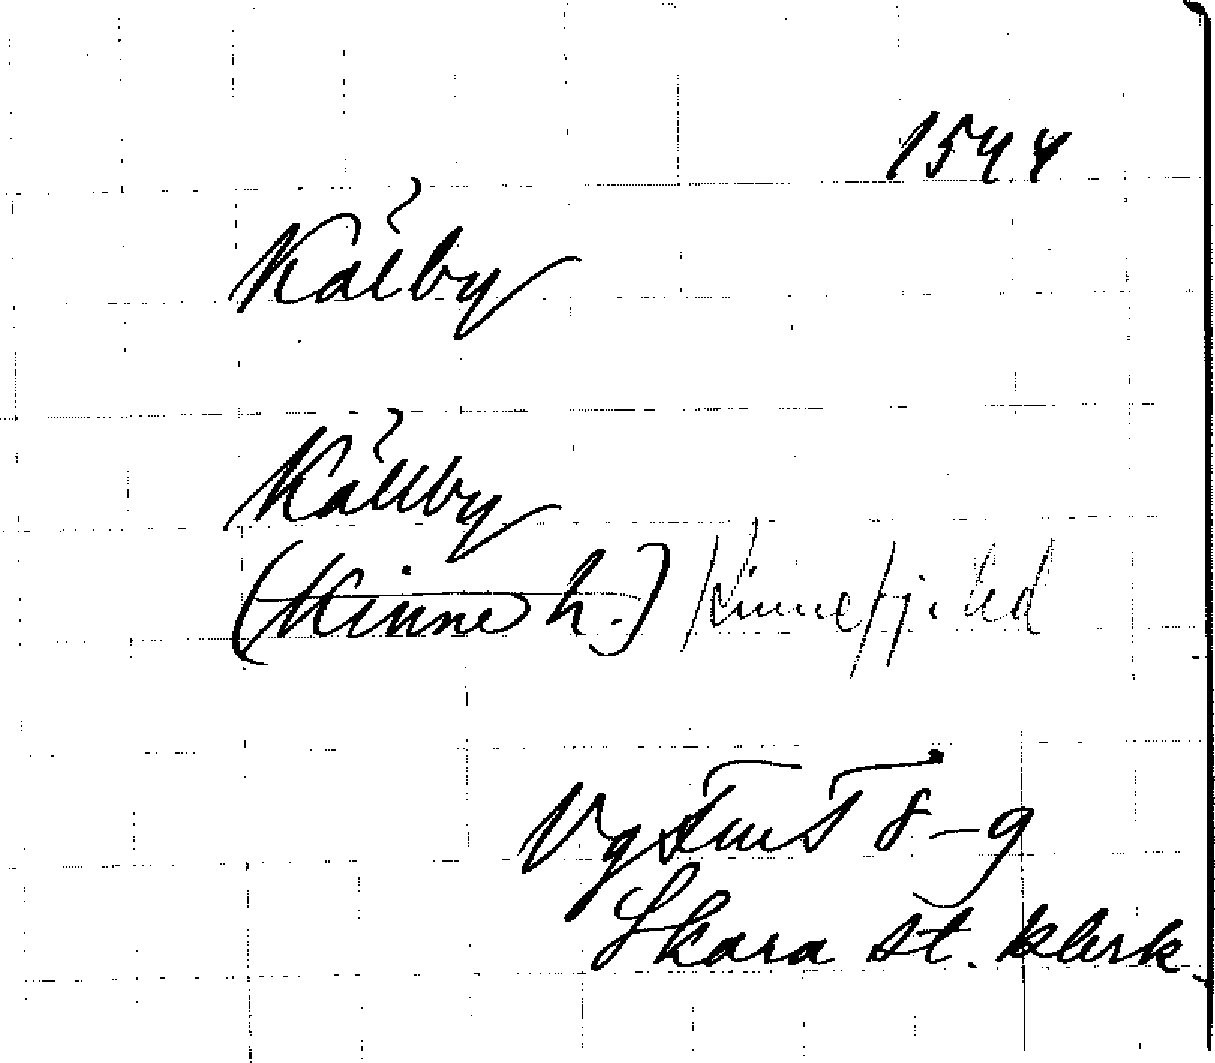 1544
Kålby
Kållby
(Kinne h.) Kinnefjärd
Vg FmT 8-9
Skara st. klerk.